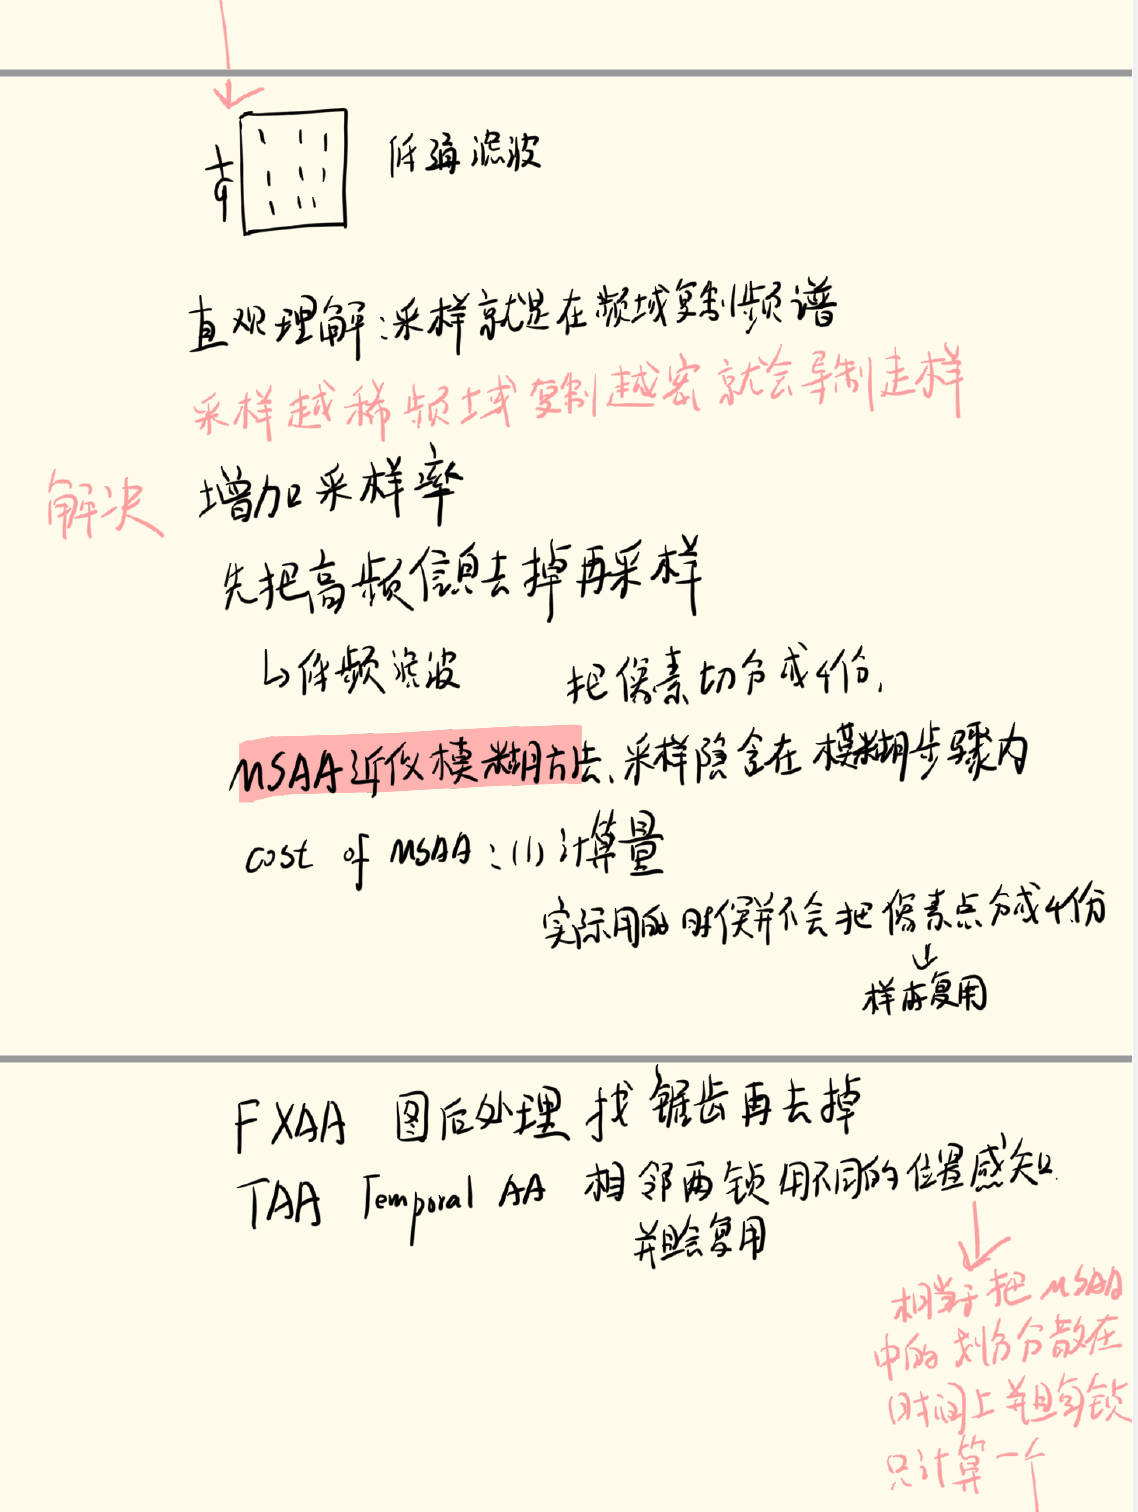 1/9 1 1 1 1 1 1 1 1 1 低通滤波
直观理解:采样就是在频域复制频谱
采样越稀频域复制越密就会导制走样
解决 增加采样率
先把高频信息去掉再采样
↳低频滤波 把像素切分成4份,
MSAA近似模糊方法、采样隐含在模糊步骤内
cost of MSAA:(1)计算量
实际用的时候并不会把像素点分成4份
↓
样本复用
FXAA 图后处理 找锯齿再去掉
TAA Temporal AA 相邻两锁用不同的位置感知
并且会复用
相当于把MSAA
中的划分分散在
时间上并且每锁
只计算一个